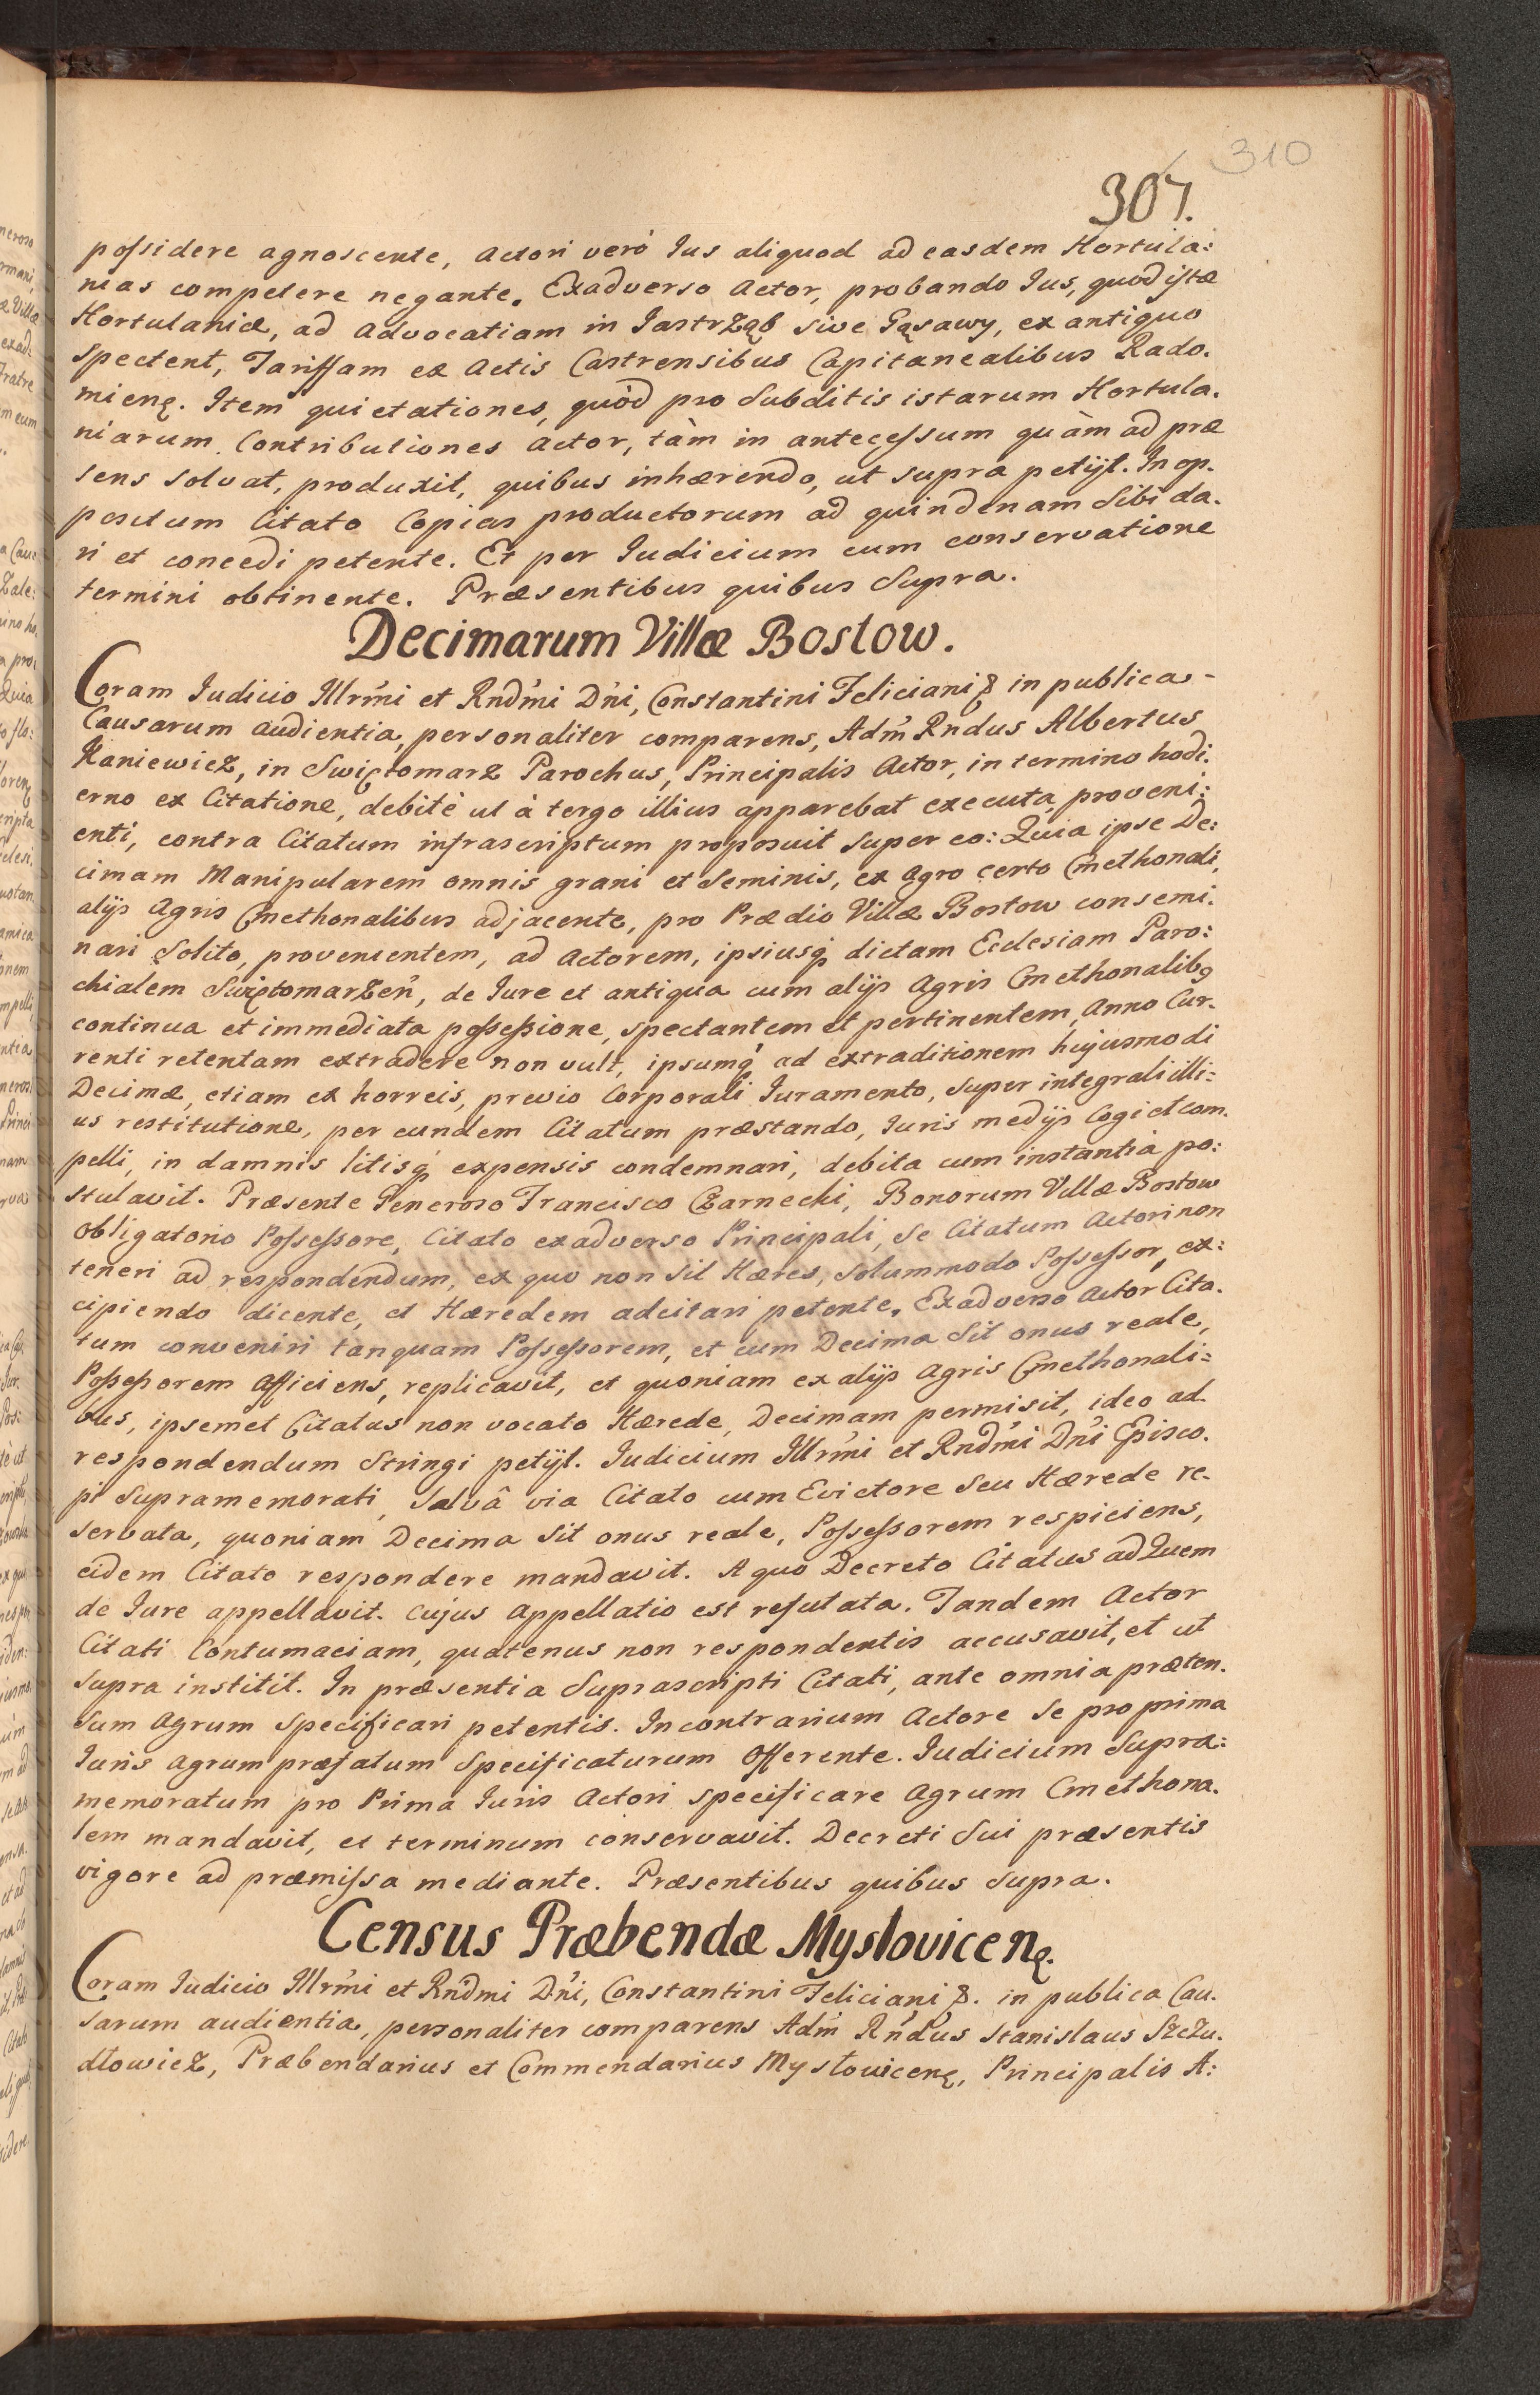 310
307.
possidere agnoscente, Actori verò Ius aliquod ad easdem Hortula:
nias competere negante. Exadverso Actor, probando Ius, quod istæ
Hortulaniæ, ad Advocatiam in Iastrząb sive Gąsawy, ex antiquo
spectent, Tariffam ex Actis Castrensibus Capitanealibus Rado.
mieng. Item quietationes, quòd pro Subditis istarum Hortula.
niarum Contributiones Actor, tàm in antecessum quàm ad præ
sens solvat, produxit, quibus inhærendo, ut supra petijt. In op.
positum Citato Copias productorum ad quindenam Sibi da.
ri et concedi petente. Et per Iudicium cum conservatione
termini obtinente. Præsentibus quibus Supra.
Decimarum Villæ Bostow.
Coram Iudicio Illrmi et Rndmi Dni, Constantini Feliciani &. in publica
Causarum audientia, personaliter comparens, Adm Rndus Albertus
Kaniewicz, in Swiętomarz Parochus, Principalis Actor, in termino hodi.
erno ex Citatione, debitè ut à tergo illius apparebat executa, proveni:
enti, contra Citatum infrascriptum proposuit super eo: Quia ipse De:
cimam Manipularem omnis grani et Seminis, ex Agro certo Cmethonali,
alijs Agris Cmethonalibus adjacente, pro Prædio Villæ Bostow consemi.
nari Solito, provenientem, ad Actorem, ipsiusq dictam Ecclesiam Paro:
chialem Swiętomarzen, de Iure et antiqua cum alijs Agris Cmethonalibq
continua et immediata possessione, spectantem et pertinentem, Anno Cur.
renti retentam extradere non vult, ipsumq ad extraditionem hujusmodi
Decimæ, etiam ex horreis, previo Corporali Iuramento, super integrali illi:
us restitutione, per eundem Citatum præstando, Iuris medijs Cogi et com.
pelli, in damnis litisq expensis condemnari, debita cum instantia po:
stulavit. Præsente Generoso Francisco Czarnecki, Bonorum Villæ Bostow
Obligatorio Possessore, Citato exadverso Principali, Se Citatum Actori non
teneri ad respondendum, ex quo non Sit Hæres, Solummodo Possessor, ex:
cipiendo dicente, et Hæredem adcitari petente. Exadverso Actor Cita.
tum conveniri tanquam Possessorem, et cum Decima Sit onus reale,
Possessorem Afficiens, replicavit, et quoniam ex alijs Agris Cmethonali:
bus, ipsemet Citatus non vocato Hærede, Decimam permisit, ideo ad
respondendum Stringi petijt. Iudicium Illrmi et Rndmi Dni Episco.
pi Supramemorati, Salvâ via Citato cum Evictore Seu Hærede re.
servata, quoniam Decima Sit onus reale, Possessorem respiciens,
eidem Citato respondere mandavit. A quo Decreto Citatus ad Quem
de Iure appellavit. Cujus Appellatio est refutata. Tandem Actor
Citati Contumaciam, quatenus non respondentis accusavit, et ut
Supra institit. In præsentia Suprascripti Citati, ante omnia præten.
Sum Agrum Specificari petentis. In contrarium Actore Se pro prima
Iuris Agrum præfatum Specificaturum Offerente. Iudicium Supra:
memoratum pro Prima Iuris Actori specificare Agrum Cmethona.
lem mandavit, et terminum conservavit. Decreti Sui præsentis
vigore ad præmissa mediante. Præsentibus quibus Supra.
Census Præbendæ Myslovicenę.
Coram Iudicio Illrmi et Rndmi Dni, Constantini Feliciani &. in publica Cau.
sarum audientia, personaliter comparens Adm Rndus Stanislaus Szczu.
dłowicz, Præbendarius et Commendarius Mysłowicenę, Principalis A: